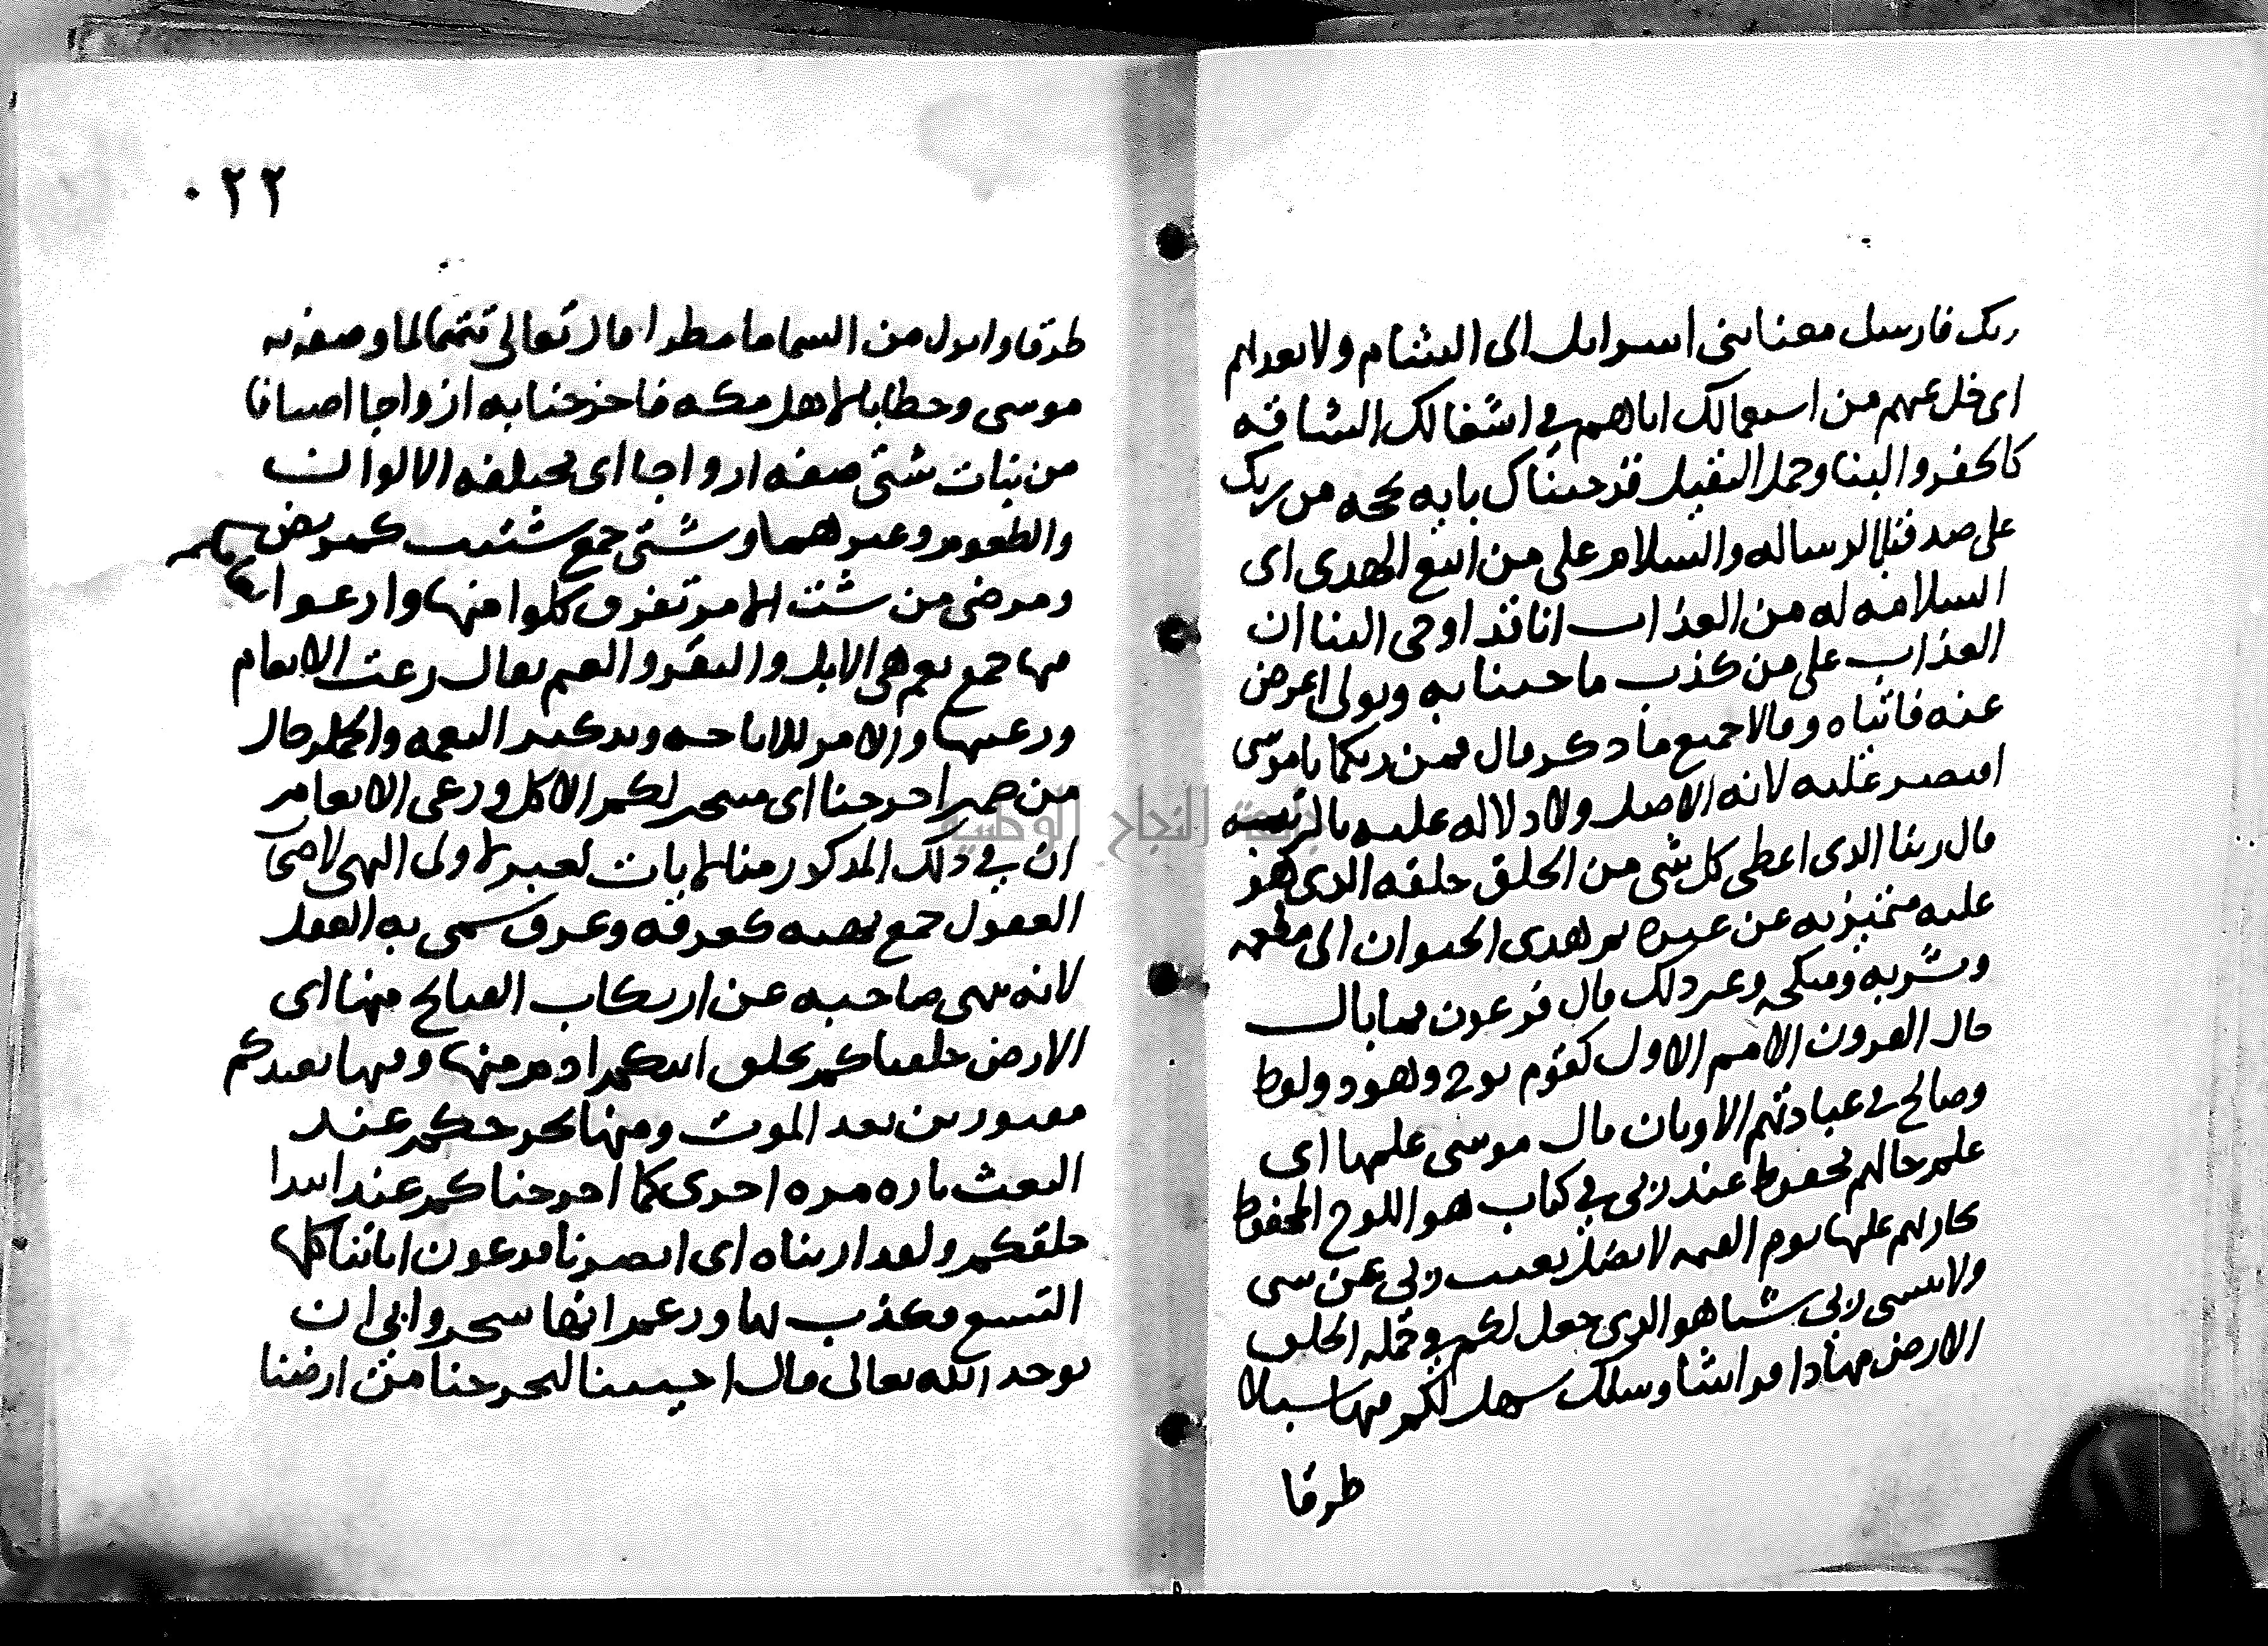 ربك فارسل معنا بنى اسرايل الى الشام ولا تعذبهم
اى خل عنهم من استعمالك اياهم فى اشغالك الشاقه
كالحفر والبنا وحمل الثقيل قد جيناك بايه بحجه من ربك
على صدقنا بالرساله والسلام على من اتبع الهدى اى
السلامه له من العذاب انا قد اوحى الينا ان
العذاب على من كذب ما جينا به وتولى اعرض
عنه فاتياه وقالا جميع ما ذكر قال فمن ربكما يا موسى
اقتصر عليه لانه الاصل ولا دلاله عليه بالتربيه
قال ربنا الذى اعطى كل شى من الخلق خلقه الذى هو
عليه متميز به عن غيره ثم هدى الحيوان الى مطعمه
ومشربه ومنكحه وغير ذلك قال فرعون فما بال
حال القرون الامم الاول كقوم نوح وهود ولوط
وصالح فى عبادتهم الاوثان قال موسى علمها اى
علم حالهم محفوظ عند ربى فى كتاب هو اللوح المحفوظ
يجازيهم عليها يوم القيمه لا يضل يغيب ربى عن شى
ولا ينسى ربى شيا هو الذى جعل لكم فى جمله الخلق
الارض مهادا فراشا وسلك سهل لكم فيها سبلا
طرقا
٠٢٢
طرقا وانزل من السما ما مطرا قال تعالى تتميما لما وصفه به
موسى وخطابا لاهل مكه فاخرجنا به ازواجا اصنافا
من نبات شتى صفه ازواجا اى مختلفه الالوان
والطعوم وغيرهما وشتى جمع شتيت كمريض
ومرضى من شت الامر تفرق كلوا منها وارعوا انعامكم
فيها جمع نعم هى الابل والبقر والغنم يقال رعت الانعام
ورعيتها والامر للاباحه وتذكير النعمه والجمله حال
من ضمير اخرجنا اى مبيحين لكم الاكل ورعى الانعام
ان فى ذلك المذكور منا لايات لعبر لاولى النهى لاصحاب
العقول جمع نهيه كغرفه وغرف سمى به العقل
لانه ينهى صاحبه عن ارتكاب القبائح منها اى
الارض خلقناكم بخلق ابيكم ادم منها وفيها نعيدكم
مقبورين بعد الموت ومنها نخرجكم عند
البعث تاره مره اخرى كما اخرجناكم عند ابتدا
خلقكم ولقد اريناه اى ابصرنا فرعون اياتنا كلها
التسع فكذب بها وزعم انها سحر وابى ان
يوحد الله تعالى قال اجيتنا لتخرجنا من ارضنا